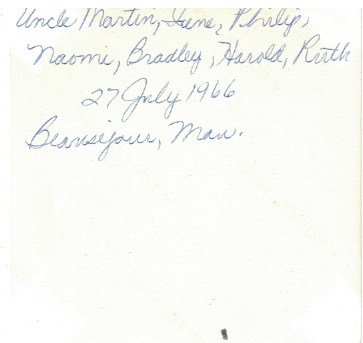 Uncle Martin, June, Philip,
Naomi, Bradley, Harold, Ruth
27 July 1966
Beausejour, Man.